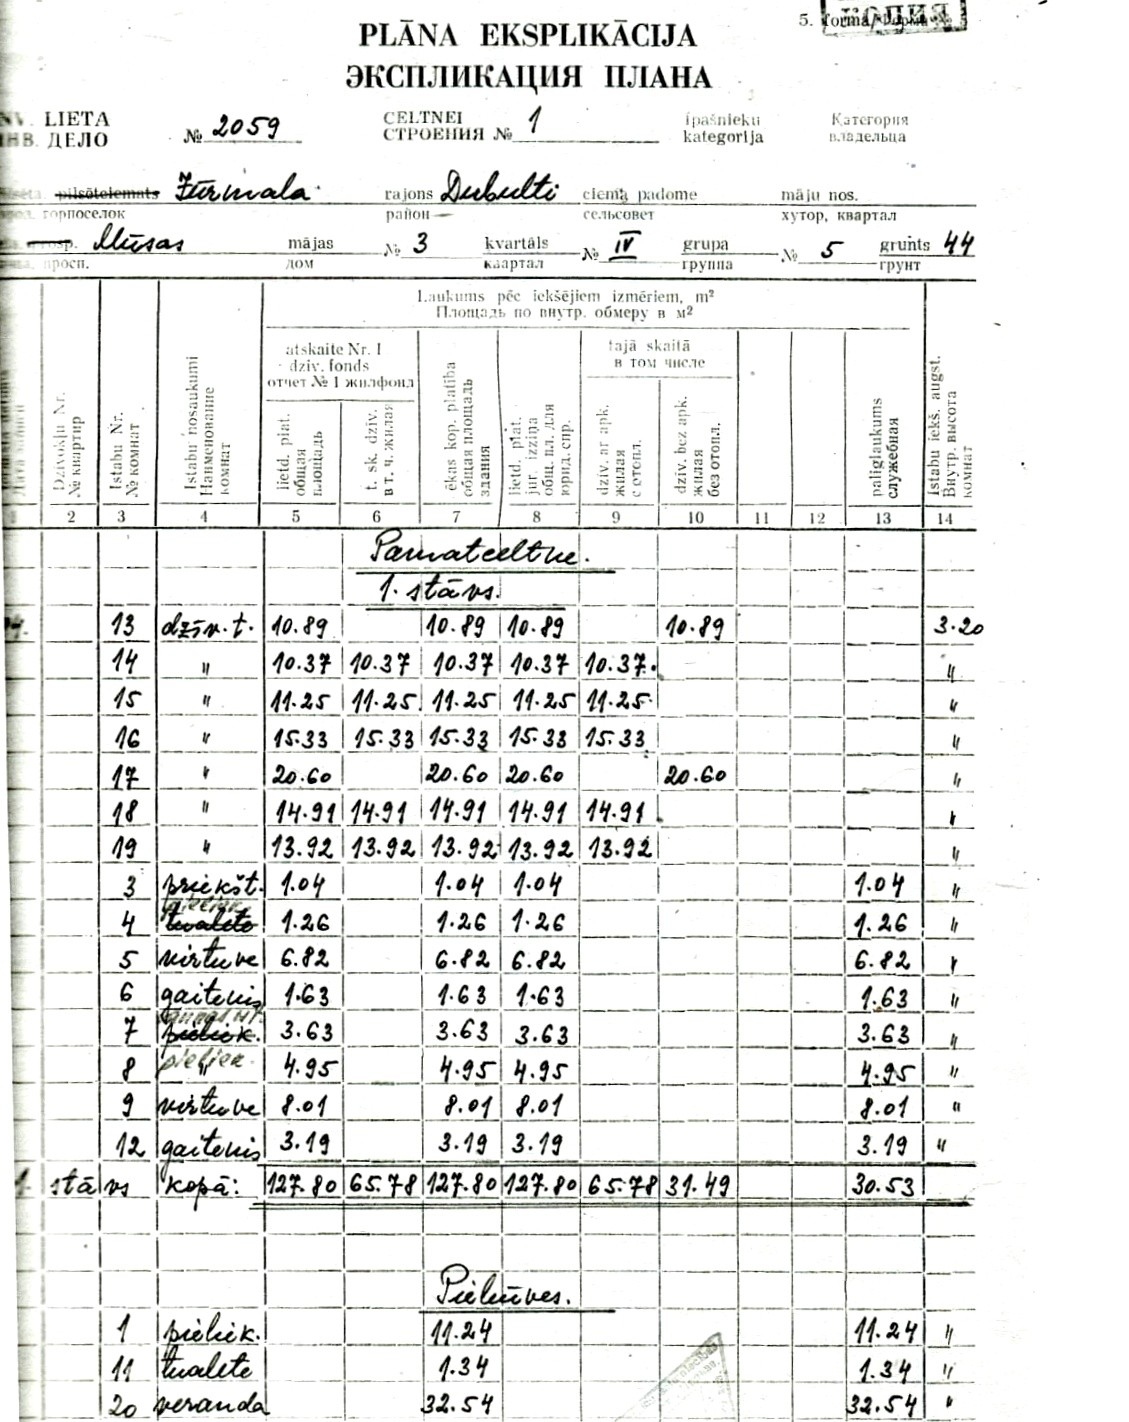 5. forma/Форма №
КОПИЯ
PLĀNA EKSPLIKĀCIJA
ЭКСПЛИКАЦИЯ ПЛАНА
LIETA № 2059 CELTNEI № 1 īpašnieku kategorija Категория владельца
ИНВ. ДЕЛО СТРОЕНИЯ
pilsētciemats Jūrmala rajons Dubulti ciema padome māju nos.
горпоселок район сельсовет хутор, квартал
prosp. Mūsas mājas № 3 kvartāls № IV grupa № 5 grunts 44
просп. дом квартал группа грунт
Laukums pēc iekšējiem izmēriem, m²
Площадь по внутр. обмеру в м²
atskaite Nr. 1 dzīv. fonds
отчет № 1 жилфонд
tajā skaitā
в том числе
Dzīvokļu Nr. № квартир
Istabu Nr. № комнат
Istabu nosaukumi Наименование комнат
lietd. plat. общая площадь
t. sk. dzīv. в т. ч. жилая
ēkas kop. platība общая площадь здания
lietd. plat. jur. izziņa общ. пл. для юрид. спр.
dzīv. ar apk. жилая с отопл.
dzīv. bez apk. жилая без отопл.
palīglaukums служебная
Istabu iekš. augst. Внутр. высота комнат
2 3 4 5 6 7 8 9 10 11 12 13 14
Pamatceltne.
1. stāvs.
13 dzīv. t. 10.89 10.89 10.89 10.89 3.20
14 " 10.37 10.37 10.37 10.37 10.37 "
15 " 11.25 11.25 11.25 11.25 11.25 "
16 " 15.33 15.33 15.33 15.33 15.33 "
17 " 20.60 20.60 20.60 20.60 "
18 " 14.91 14.91 14.91 14.91 14.91 "
19 " 13.92 13.92 13.92 13.92 13.92 "
3 priekšt. 1.04 1.04 1.04 1.04 "
4 tualete 1.26 1.26 1.26 1.26 "
5 virtuve 6.82 6.82 6.82 6.82 "
6 gaitenis 1.63 1.63 1.63 1.63 "
7 pieliek. 3.63 3.63 3.63 3.63 "
8 pieliek. 4.95 4.95 4.95 4.95 "
9 virtuve 8.01 8.01 8.01 8.01 "
12 gaitenis 3.19 3.19 3.19 3.19 "
1. stāvs kopā: 127.80 65.78 127.80 127.80 65.78 31.49 30.53
Piebūves.
1 pieliek. 11.24 11.24 "
11 tualete 1.34 1.34 "
20 veranda 32.54 32.54 "